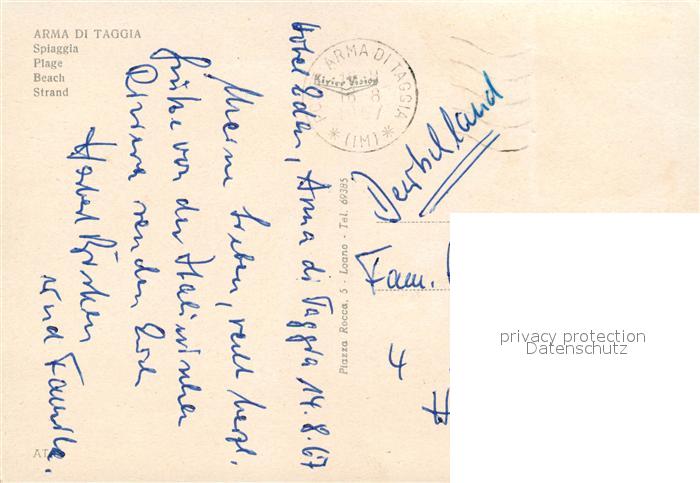 ARMA DI TAGGIA
Spiaggia
Plage
Beach
Strand
ARMA DI TAGGIA
* (IM) *
Hotel Eden, Arma di Taggia 14.8.67
Meine Lieben, recht herzl.
Grüße von der Italienischen
Riviera senden Euch
Herbert
und Familie.
Piazza Rocca, 5 - Loano - Tel. 69385
Deutschland
Fam.
4
privacy protection
Datenschutz